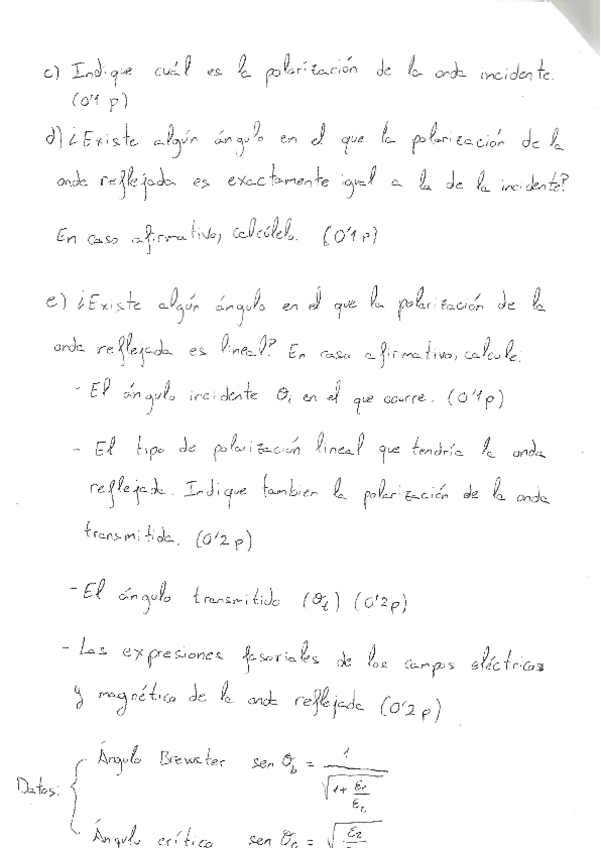 c) Indique cuál es la polarización de la onda incidente.
(0'1 p)
d) ¿Existe algún ángulo en el que la polarización de la
onda reflejada es exactamente igual a la de la incidente?
En caso afirmativo, calcúlelo. (0'1 p)
e) ¿Existe algún ángulo en el que la polarización de la
onda reflejada es lineal? En caso afirmativo, calcule:
- El ángulo incidente θi en el que ocurre. (0'1 p)
- El tipo de polarización lineal que tendría la onda
reflejada. Indique tambien la polarización de la onda
transmitida. (0'2 p)
- El ángulo transmitido (θt) (0'2 p)
- Las expresiones fasoriales de los campos eléctricos
y magnético de la onda reflejada (0'2 p)
Datos:
Ángulo Brewster sen θb = 1 / √(1 + ε1/ε2)
Ángulo crítico sen θc = √ε2